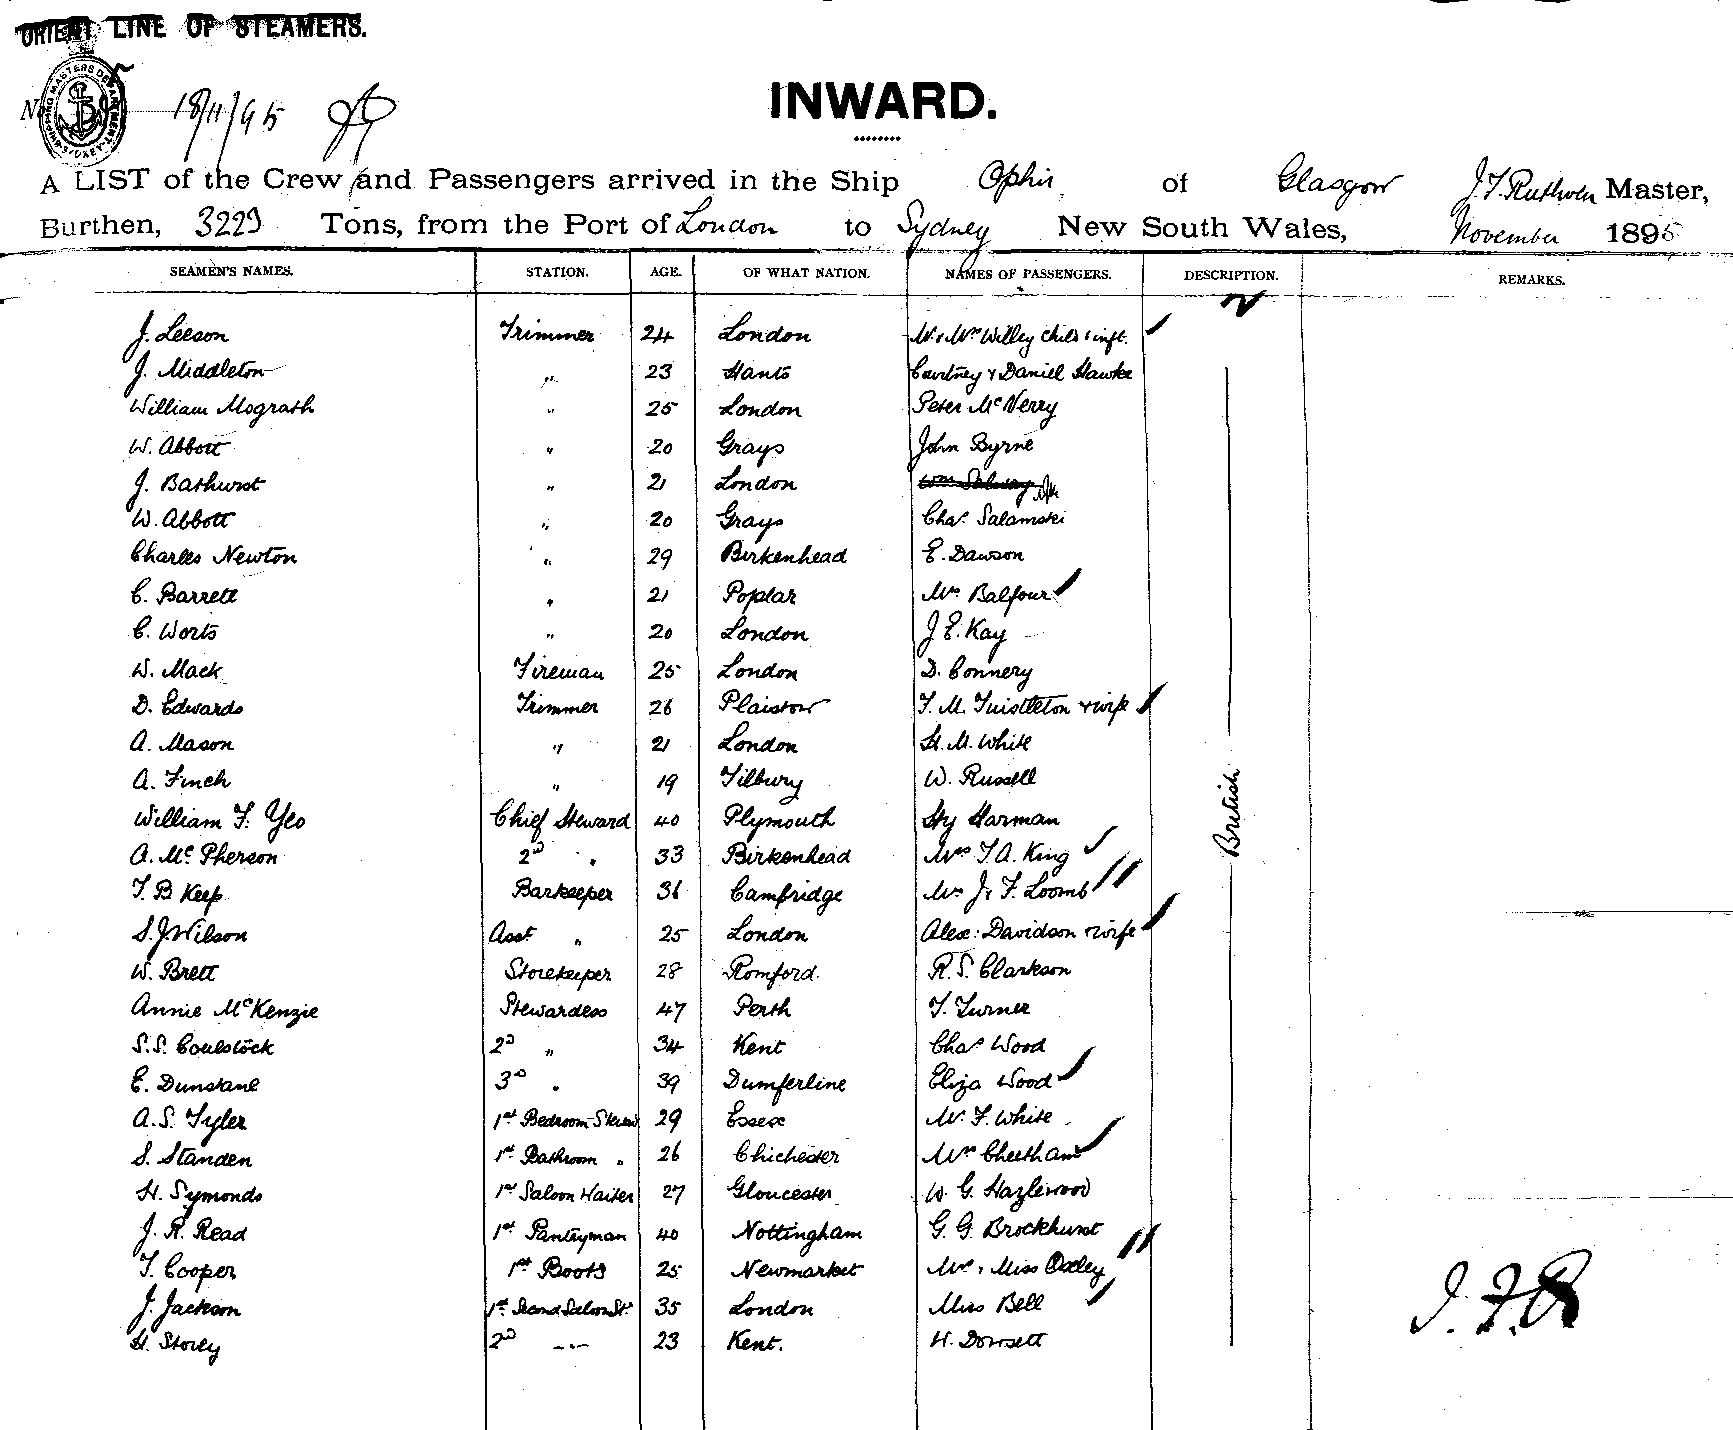 ORIENT LINE OF STEAMERS.
SHIPPING MASTERS DEPARTMENT SYDNEY
18/11/95
INWARD.
A LIST of the Crew and Passengers arrived in the Ship Ophir of Glasgow J. F. Ruthven Master,
Burthen, 3223 Tons, from the Port of London to Sydney New South Wales, November 1895
SEAMEN'S NAMES. STATION. AGE. OF WHAT NATION. NAMES OF PASSENGERS. DESCRIPTION. REMARKS.
J. Leeson Trimmer 24 London Mr & Mrs Willey child & inft.
J. Middleton " 23 Hants Courtney & Daniel Hawke
William Mograth " 25 London Peter McNerry
W. Abbott " 20 Grays John Byrne
J. Bathurst " 21 London
W. Abbott " 20 Grays Chas. Salamski
Charles Newton " 29 Birkenhead E. Dawson
C. Barrett " 21 Poplar Mrs Balfour
C. Worts " 20 London J E. Kay
W. Mack Fireman 25 London D. Connery
D. Edwards Trimmer 26 Plaistow T. M. Tuistleton & wife
A. Mason " 21 London H. M. White
A. Finch " 19 Tilbury W. Russell
William F. Yeo Chief Steward 40 Plymouth Hy Harman
A. McPherson 2D " 33 Birkenhead Mrs T A. King
T. B Keep Barkeeper 36 Cambridge Mrs J & F. Loomb
S. J. Wilson Asst " 25 London Alex: Davidson & wife
W. Brett Storekeeper 28 Romford R. S. Clarkson
Annie McKenzie Stewardess 47 Perth T. Turner
S. S. Coulstock 2D " 34 Kent Chas Wood
E. Dunstane 3D " 39 Dumferline Eliza Wood
A. S. Tyler 1st Bedroom Steward 29 Essex Mr. F. White
S. Standen 1st Bathroom " 26 Chichester Mrs Cheetham
H. Symonds 1st Saloon Waiter 27 Gloucester W. G. Hazlewood
J. R. Read 1st Pantryman 40 Nottingham G. G. Brockhurst
T. Cooper 1st Boots 25 Newmarket Mrs & Miss Oxley
J. Jackson 1st Second Saloon St. 35 London Miss Bell
H. Storey 2D " 23 Kent. H. Dowsett
British
J. F. R